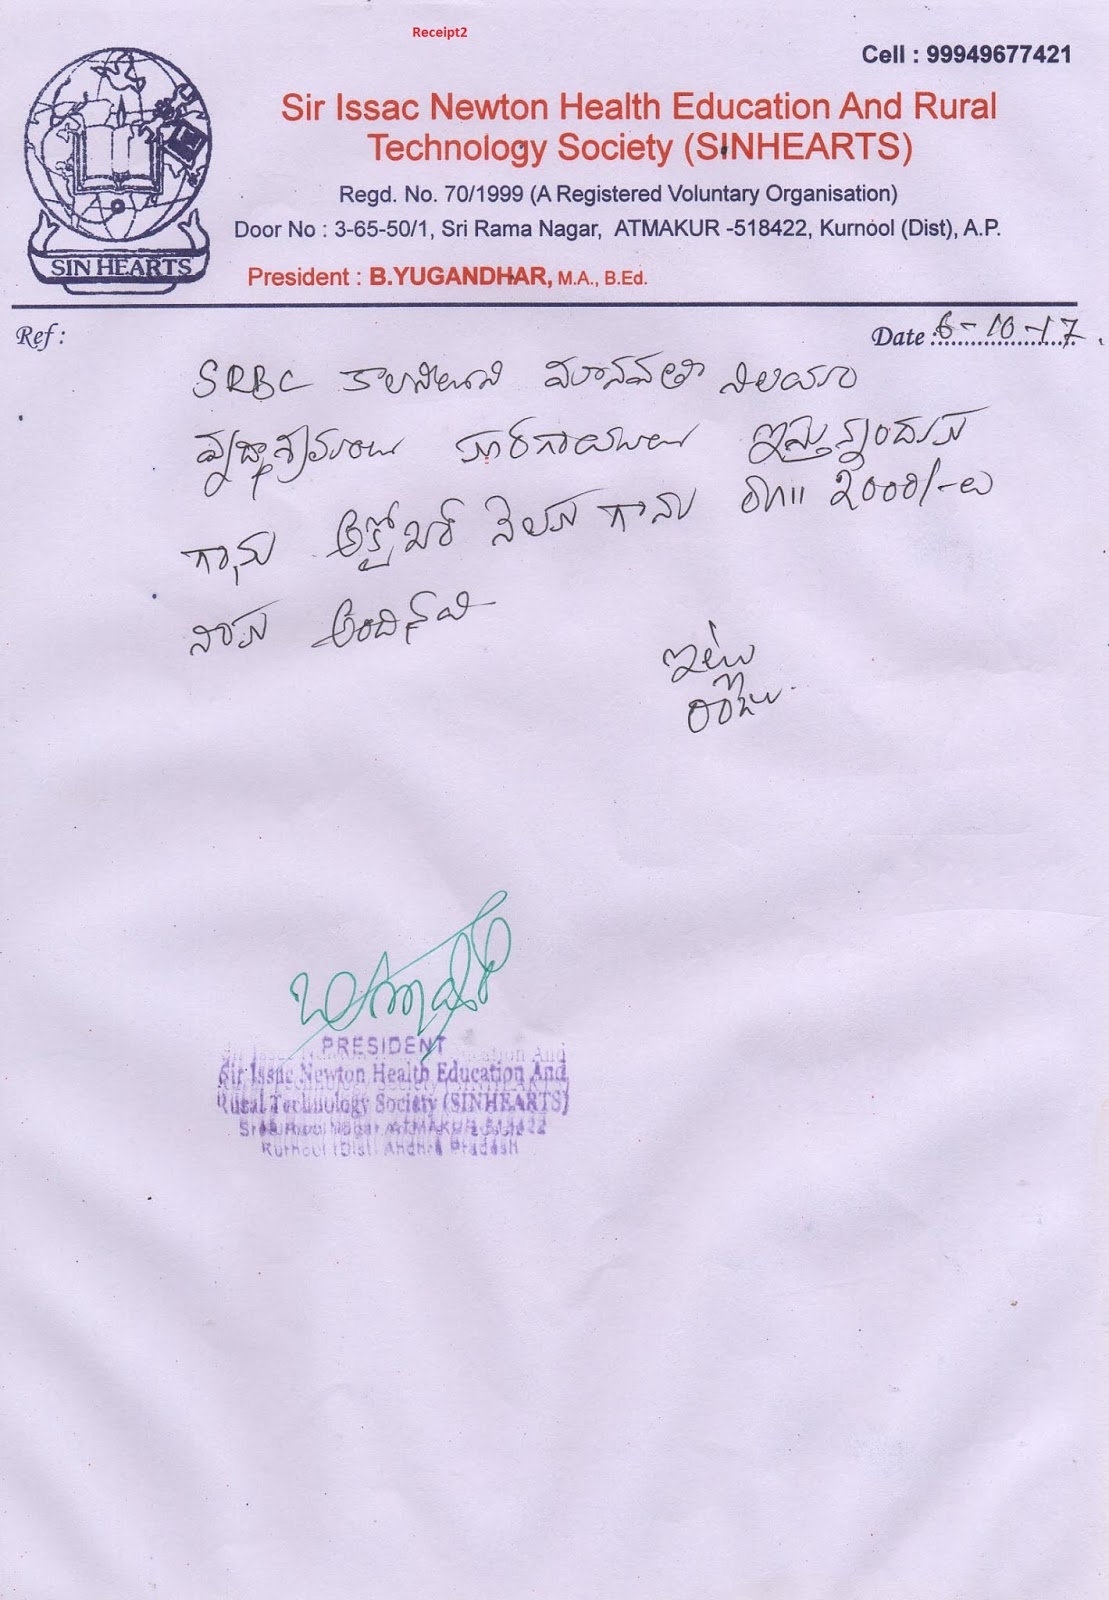 Receipt2
Cell : 99949677421
Sir Issac Newton Health Education And Rural
Technology Society (SINHEARTS)
Regd. No. 70/1999 (A Registered Voluntary Organisation)
Door No : 3-65-50/1, Sri Rama Nagar, ATMAKUR -518422, Kurnool (Dist), A.P.
SIN HEARTS
President : B.YUGANDHAR, M.A., B.Ed.
Ref :
Date : 6-10-17
SRBC కాలనీలోని మానవతా నిలయం
వృద్ధాశ్రమంకు కూరగాయలకు ఇస్తున్నందుకు
గాను అక్టోబర్ నెలకు గాను రూ॥ 2000/-లు
నాకు అందినవి
ఇట్లు
PRESIDENT
Sir Issac Newton Health Education And
Rural Technology Society (SINHEARTS)
Sri Rama Nagar, ATMAKUR-518422
Kurnool (Dist) Andhra Pradesh